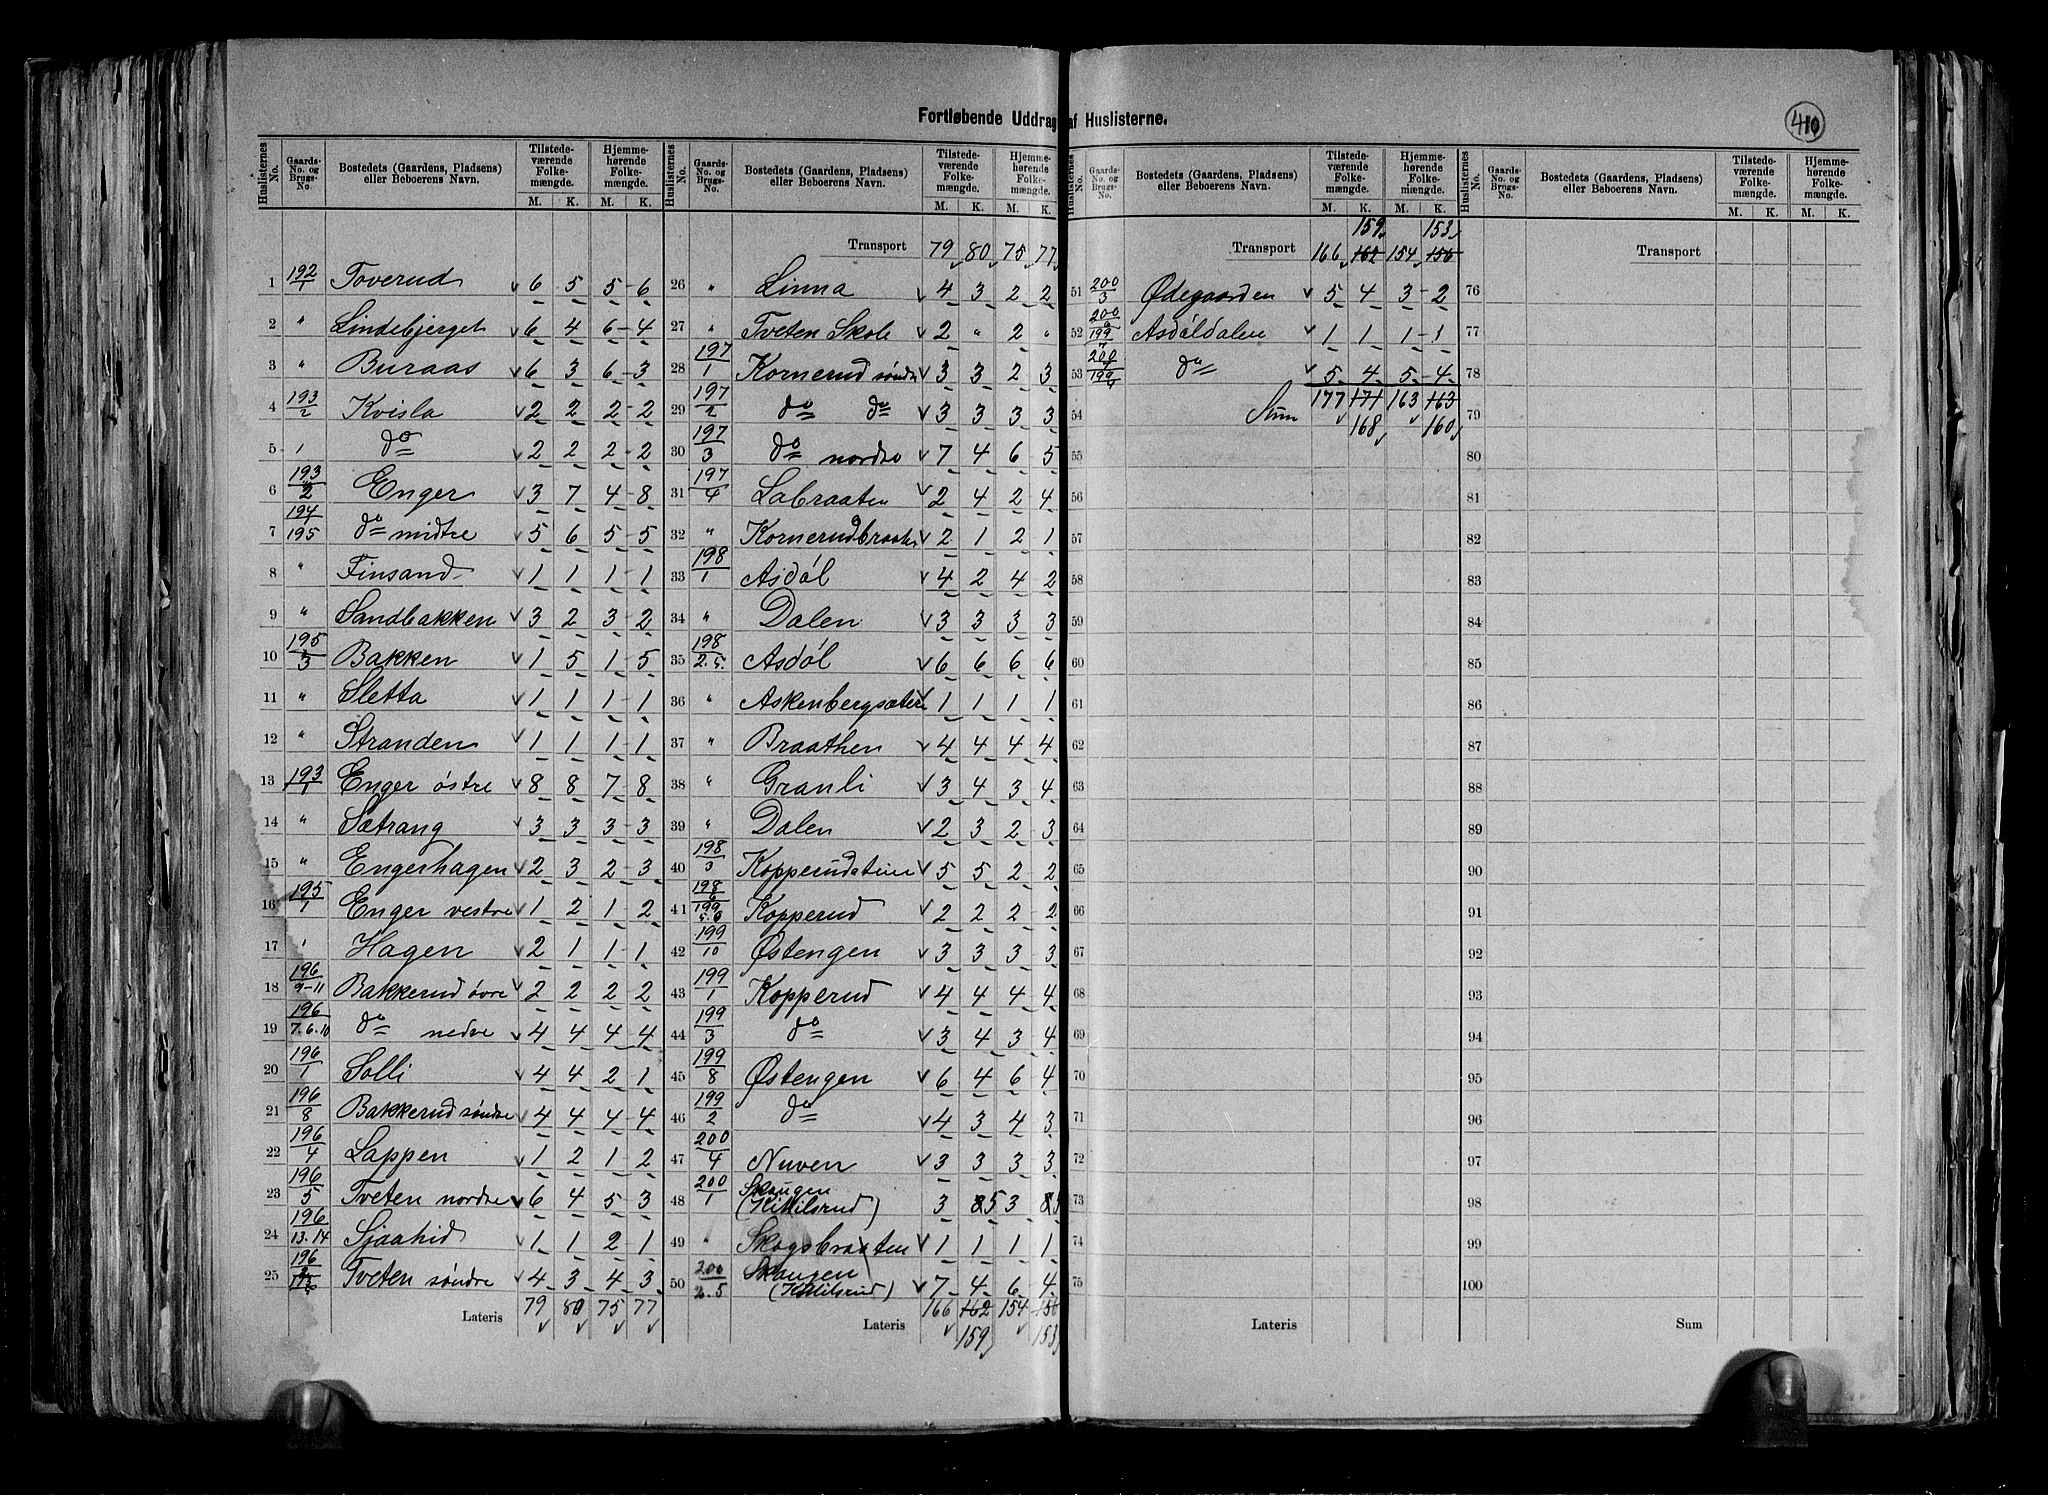 Fortløbende Uddrag af Huslisterne.
410
Huslisternes No. | Gaards-No. og Brugs-No. | Bostedets (Gaardens, Pladsens) eller Beboerens Navn. | Tilstedeværende Folkemængde. M. K. | Hjemmehørende Folkemængde. M. K.
1 192/1 Toverud 6 5 5 6
2 " Lindebjerget 6 4 6 4
3 " Buraas 6 3 6 3
4 193/2 Kvisla 2 2 2 2
5 " do 2 2 2 2
6 193/2 Enger 3 7 4 8
7 194 195 do midtre 5 6 5 5
8 " Finsand 1 1 1 1
9 " Sandbakken 3 2 3 2
10 195/3 Bakken 1 5 1 5
11 " Sletta 1 1 1 1
12 " Stranden 1 1 1 1
13 193/1 Enger østre 8 8 7 8
14 " Sætrang 3 3 3 3
15 " Engerhagen 2 3 2 3
16 195/1 Enger vestre 1 2 1 2
17 " Hagen 2 1 1 1
18 196/9-11 Bakkerud øvre 2 2 2 2
19 196/7.6.10 do nedre 4 4 4 4
20 196/1 Solli 4 4 2 1
21 196/8 Bakkerud søndre 4 4 4 4
22 196/4 Lappen 1 2 1 2
23 196/5 Tveten nordre 6 4 5 3
24 196/13.14 Sjaahid 1 1 2 1
25 196 Tveten søndre 4 3 4 3
Lateris 79 80 75 77
Huslisternes No. | Gaards-No. og Brugs-No. | Bostedets (Gaardens, Pladsens) eller Beboerens Navn. | Tilstedeværende Folkemængde. M. K. | Hjemmehørende Folkemængde. M. K.
Transport 79 80 75 77
26 " Linna 4 3 2 2
27 " Tveten Skole 2 " 2 "
28 197/1 Kornerud søndre 3 3 2 3
29 197/2 do do 3 3 3 3
30 197/3 do nordre 7 4 6 5
31 197/4 Labraaten 2 4 2 4
32 " Kornerudbraaten 2 1 2 1
33 198/1 Asdøl 4 2 4 2
34 " Dalen 3 3 3 3
35 198/2.5. Asdøl 6 6 6 6
36 " Askenbergsæter 1 1 1 1
37 " Braathen 4 4 4 4
38 " Granli 3 4 3 4
39 " Dalen 2 3 2 3
40 198/3 Kopperudsteinen 5 5 2 2
41 198/6 199/5.6 Kopperud 2 2 2 2
42 199/10 Østengen 3 3 3 3
43 199/1 Kopperud 4 4 4 4
44 199/3 do 3 4 3 4
45 199/8 Østengen 6 4 6 4
46 199/2 do 4 3 4 3
47 200/4 Nuven 3 3 3 3
48 200/1 Skougen (Kittilsrud) 3 85 3 85
49 " Skogsbraaten 1 1 1 1
50 200/2.5 Skougen (Kittilsrud) 7 4 6 4
Lateris 166 162 154 156
159 153
Huslisternes No. | Gaards-No. og Brugs-No. | Bostedets (Gaardens, Pladsens) eller Beboerens Navn. | Tilstedeværende Folkemængde. M. K. | Hjemmehørende Folkemængde. M. K.
159 153
Transport 166 162 154 156
51 200/3 Ødegaarden 5 4 3 2
52 200 199/7 Asdøldalen 1 1 1 1
53 200 199/9 do 5 4 5 4
54 Sum 177 171 163 163
168 160
55
56
57
58
59
60
61
62
63
64
65
66
67
68
69
70
71
72
73
74
75
Lateris
Huslisternes No. | Gaards-No. og Brugs-No. | Bostedets (Gaardens, Pladsens) eller Beboerens Navn. | Tilstedeværende Folkemængde. M. K. | Hjemmehørende Folkemængde. M. K.
Transport
76
77
78
79
80
81
82
83
84
85
86
87
88
89
90
91
92
93
94
95
96
97
98
99
100
Sum